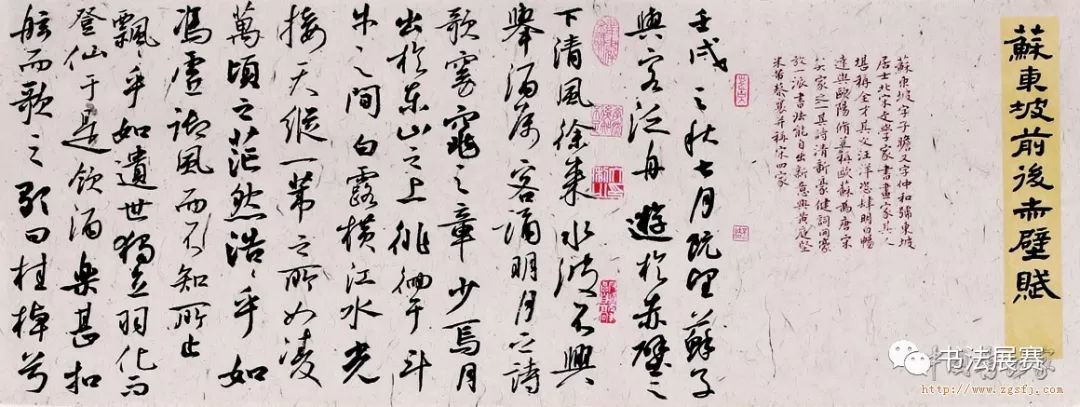 蘇東坡前後赤壁賦
蘇東坡字子瞻又字仲和號東坡
居士北宋文學家書畫家其人
堪稱全才其文汪洋恣肆明白暢
達與歐陽脩並稱歐蘇爲唐宋
八大家之一其詩清新豪健詞開豪
放一派書法能自出新意與黃庭堅
米芾蔡襄并稱宋四家
壬戌之秋七月既望蘇子
與客泛舟遊於赤壁之
下清風徐來水波不興
舉酒屬客誦明月之詩
歌窈窕之章少焉月
出於東山之上徘徊于斗
牛之間白露橫江水光
接天縱一葦之所如凌
萬頃之茫然浩々乎如
馮虛御風而不知所止
飄乎如遺世獨立羽化而
登仙于是飲酒樂甚扣
舷而歌之歌曰桂棹兮
书法展赛
http://www.zgsfj.com